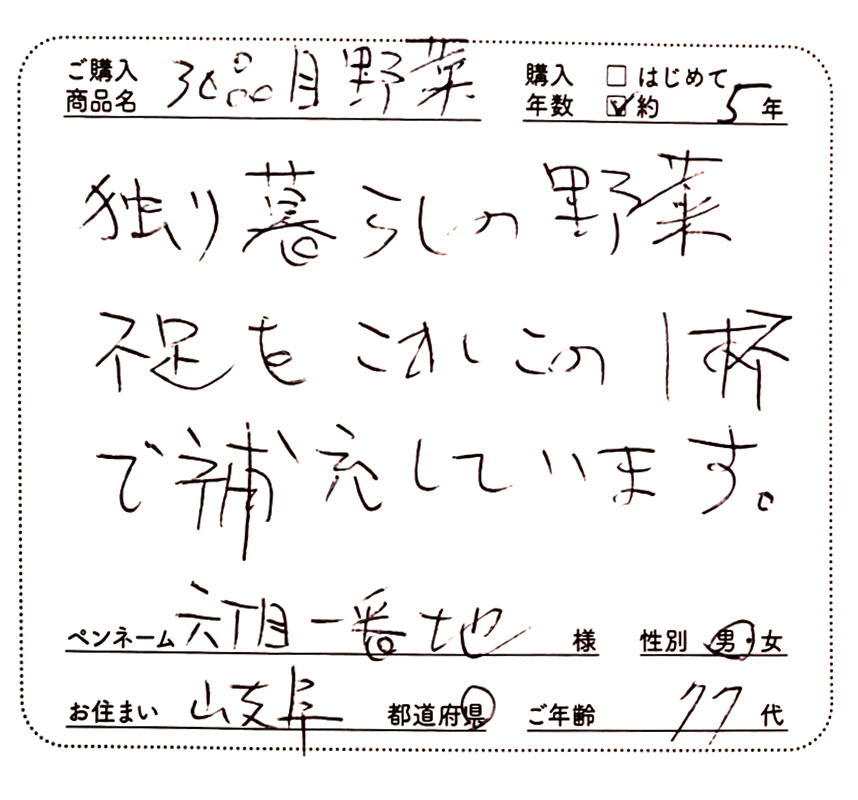 ご購入商品名 30品目野菜 購入年数 □ はじめて ☑ 約 5 年
独り暮らしの野菜
不足をこれしこの1杯
で補充しています。
ペンネーム 六丁目一番地 様 性別 男・女
お住まい 岐阜 都道府県 ご年齢 77 代